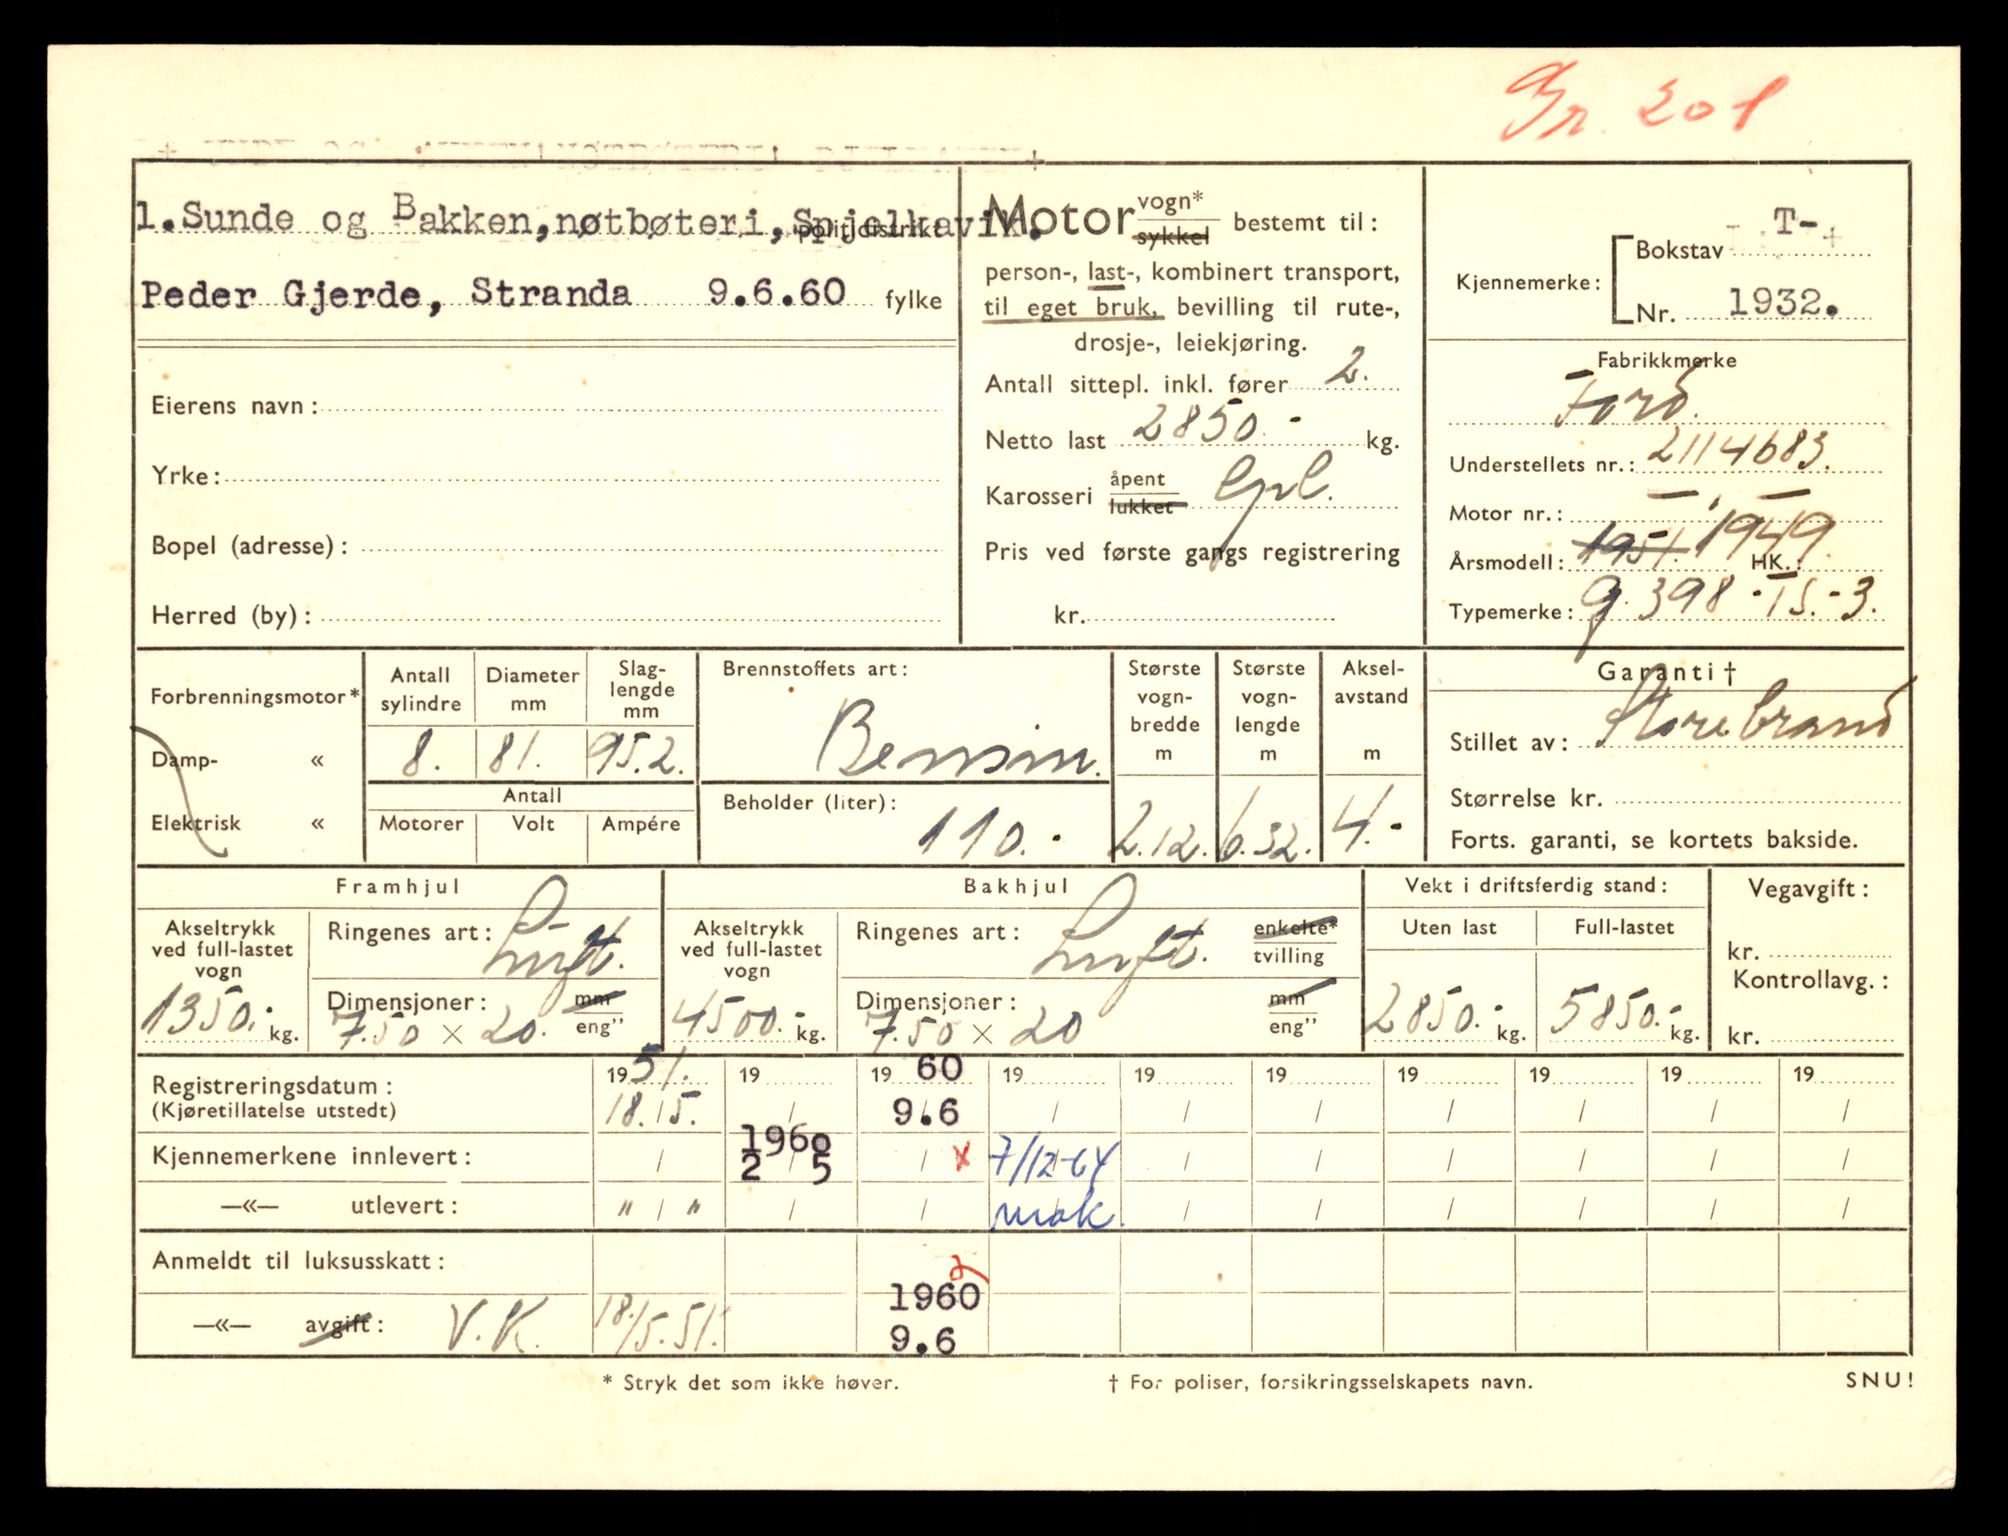 Gr. 201
1. Sunde og Bakken, nøtbøteri, Spjelkavik.
politidistrikt
Peder Gjerde, Stranda 9.6.60 fylke
Eierens navn:
Yrke:
Bopel (adresse):
Herred (by):
Motor vogn* sykkel bestemt til:
person-, last-, kombinert transport,
til eget bruk, bevilling til rute-,
drosje-, leiekjøring.
Antall sittepl. inkl. fører 2.
Netto last 2850.- kg.
Karosseri åpent lukket
Pris ved første gangs registrering
kr.
Kjennemerke: Bokstav T-
Nr. 1932.
Fabrikkmerke
Ford.
Understellets nr.: 2114683.
Motor nr.: — , —
Årsmodell: 1951. 1949. HK.:
Typemerke: g. 398 - TS. - 3.
Forbrenningsmotor*
Damp- «
Elektrisk «
Antall sylindre
8.
Diameter mm
81.
Slag-lengde mm
95.2.
Antall
Motorer Volt Ampére
Brennstoffets art:
Bensin.
Beholder (liter):
110.-
Største vogn-bredde m
2.12.
Største vogn-lengde m
6.32.
Aksel-avstand m
4.-
Garanti †
Stillet av: Storebrand
Størrelse kr.
Forts. garanti, se kortets bakside.
Framhjul
Akseltrykk ved full-lastet vogn
1350.- kg.
Ringenes art: Luft.
Dimensjoner: mm eng"
7.50 × 20.
Bakhjul
Akseltrykk ved full-lastet vogn
4500.- kg.
Ringenes art: Luft. enkelte* tvilling
Dimensjoner: mm eng"
7.50 × 20
Vekt i driftsferdig stand:
Uten last Full-lastet
2850.- kg. 5850.- kg.
Vegavgift:
kr.
Kontrollavg.:
kr.
Registreringsdatum: 1951. 19 1960 19 19 19 19 19 19 19
(Kjøretillatelse utstedt) 18./5. / 9.6 / / / / / / /
Kjennemerkene innlevert: / 1960 2/5 / x 7/12-64 / / / / / /
—«— utlevert: " / " / / mak. / / / / / /
Anmeldt til luksusskatt:
—«— avgift: V.K. 18./5.51. 1960 9.6
* Stryk det som ikke høver.
† For poliser, forsikringsselskapets navn.
SNU!